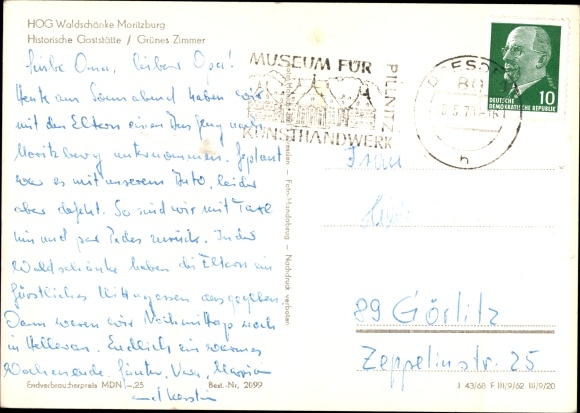 HOG Waldschänke Moritzburg
Historische Gaststätte / Grünes Zimmer
Liebe Oma, lieber Opa!
Heute am Sonnabend haben wir
mit den Eltern einen Ausflug nach
Moritzburg unternommen. Geplant
war es mit unserem Auto, leider
aber defekt. So sind wir mit Taxe
hin und per Pedes zurück. In der
Waldschänke haben die Eltern ein
fürstliches Mittagessen ausgegeben.
Dann waren wir Nachmittag noch
in Hellerau. Endlich ein warmes
Wochenende. Günter, Marion
und Kerstin
Endverbraucherpreis MDN -,25 Best.-Nr. 2099
MUSEUM FÜR
KUNSTHANDWERK
PILLNITZ
DRESDEN
h
DEUTSCHE
DEMOKRATISCHE REPUBLIK
10
Frau
89 Görlitz
Zeppelinstr. 25
J 43/68 F III/9/62 III/9/20